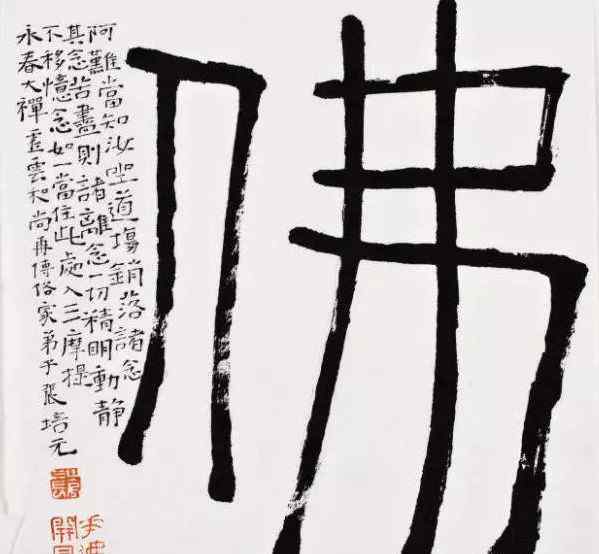 佛
阿難當知汝坐道場銷落諸念
其念若盡則諸離念一切精明動靜
不移憶念如一當住此處入三摩提
永春大禪虛雲和尚再傳俗家弟子張培元